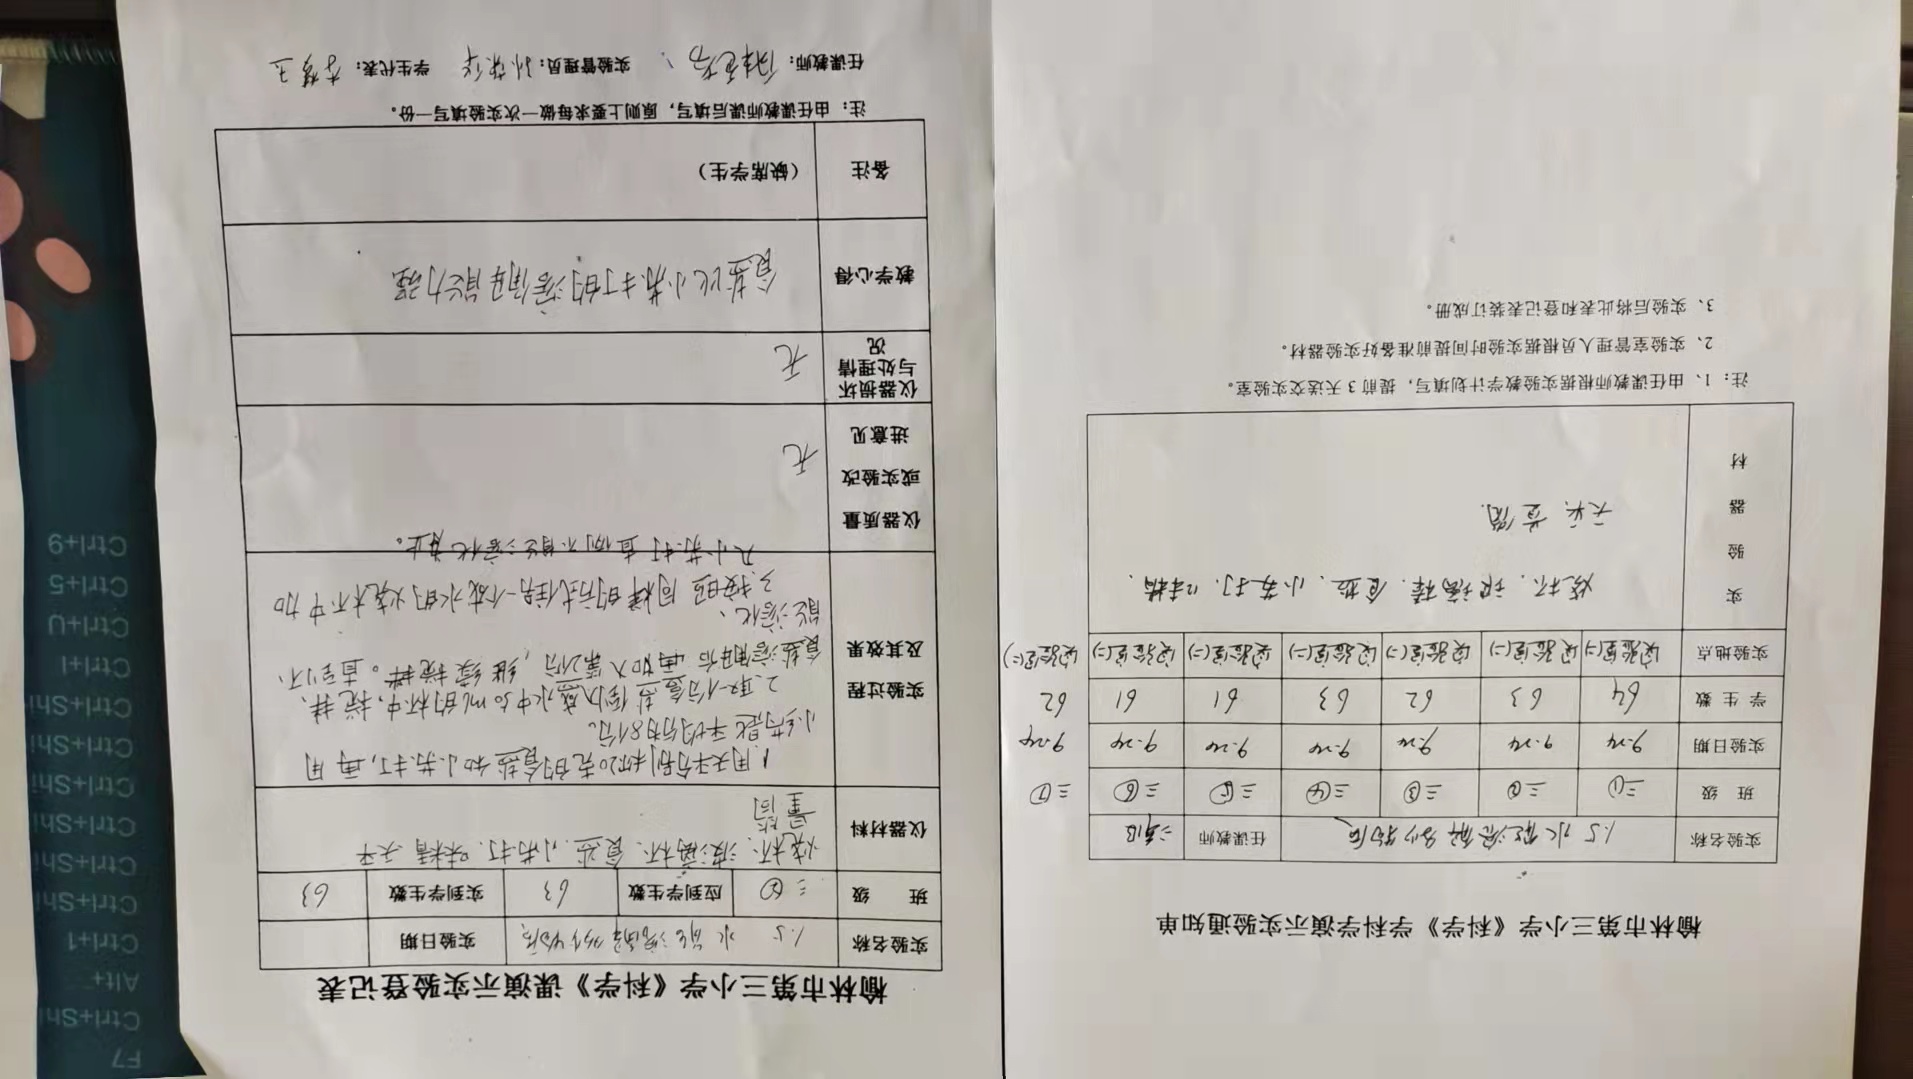 榆林市第三小学《科学》学科学演示实验通知单
实验名称 1.5 水能溶解多少物质 任课教师
班 级 三① 三② 三③ 三④ 三⑤ 三⑥ 三⑦
实验日期 9.24 9.24 9.24 9.24 9.24 9.24 9.24
学 生 数 64 63 62 63 61 61 62
实验地点 实验室(二) 实验室(二) 实验室(二) 实验室(二) 实验室(二) 实验室(二) 实验室(二)
实验器材 烧杯、玻璃棒、食盐、小苏打、味精、
天平 量筒
注：1、由任课教师根据实验教学计划填写，提前3天送交实验室。
2、实验室管理人员根据实验时间提前准备好实验器材。
3、实验后将此表和登记表装订成册。
榆林市第三小学《科学》课演示实验登记表
实验名称 1.5 水能溶解多少物质 实验日期
班 级 三② 应到学生数 63 实到学生数 63
仪器材料 烧杯、玻璃杯、食盐、小苏打、味精、天平
量筒
实验过程及其效果
1.用天平分别称20克的食盐和小苏打，再用
小勺把平均分为8份。
2.取一份食盐倒入盛水中50ml的杯中，搅拌，
食盐溶解后再加入第2份，继续搅拌。直到不
能溶化、
3.按照同样的方式往另一个盛水的烧杯中加
入小苏打直倒不能溶化为止。
仪器质量或实验改进意见 无
仪器损坏与处理情况 无
教学心得 食盐比小苏打的溶解能力强
备注 （缺席学生）
注：由任课教师课后填写，原则上要求每做一次实验填写一份。
任课教师： 实验管理员：孙荣华 学生代表：
F7
Ctrl+Shi
Alt+
Ctrl+1
Ctrl+Shi
Ctrl+Shi
Ctrl+Shi
Ctrl+Shi
Ctrl+Shi
Ctrl+Shi
Ctrl+I
Ctrl+U
Ctrl+5
Ctrl+9